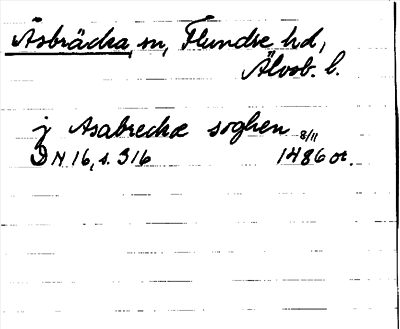 Åsbräcka, sn, Flundre hd,
Älvsb. l.
j Asabrecka soghen 8/11
DN 16, s. 316 1486 or.